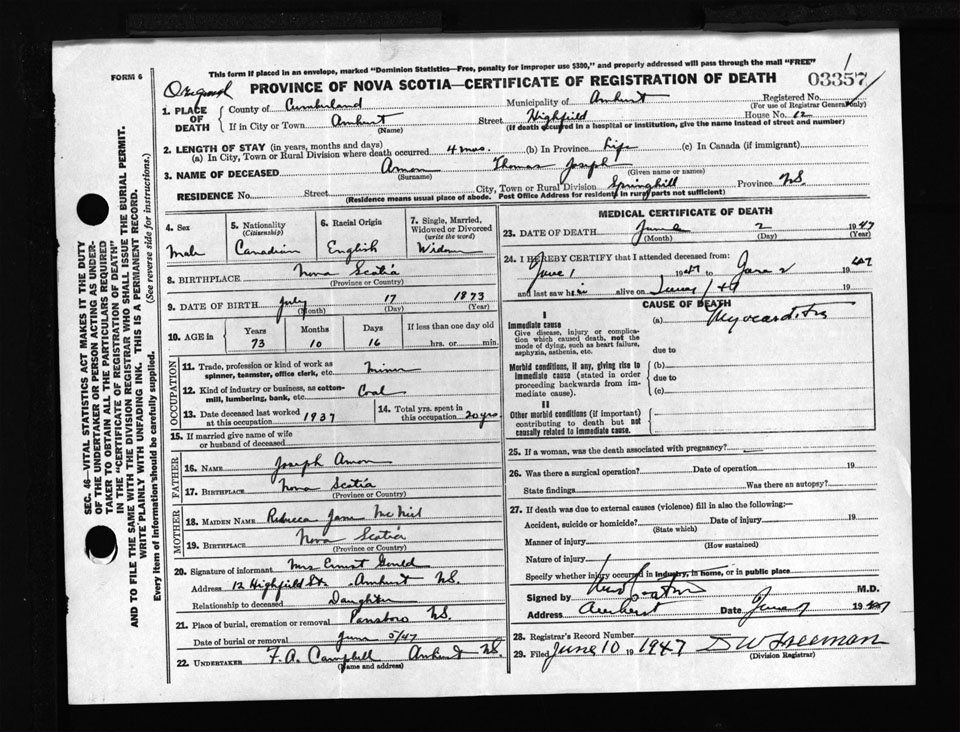 This form if placed in an envelope, marked "Dominion Statistics—Free, penalty for improper use $300," and properly addressed will pass through the mail "FREE"
FORM 6
PROVINCE OF NOVA SCOTIA—CERTIFICATE OF REGISTRATION OF DEATH
03357
Original
1. PLACE OF DEATH
County of Cumberland Municipality of Amherst Registered No.
(For use of Registrar General only)
If in City or Town Amherst Street Highfield House No. 12
(Name) (If death occurred in a hospital or institution, give the name instead of street and number)
2. LENGTH OF STAY (in years, months and days)
(a) In City, Town or Rural Division where death occurred 4 mos. (b) In Province Life (c) In Canada (if immigrant)
3. NAME OF DECEASED Amon Thomas Joseph
(Surname) (Given name or names)
RESIDENCE No. Street City, Town or Rural Division Springhill Province N.S.
(Residence means usual place of abode. Post Office Address for residents in rural parts not sufficient)
4. Sex Male
5. Nationality (Citizenship) Canadian
6. Racial Origin English
7. Single, Married, Widowed or Divorced (write the word) Widower
8. BIRTHPLACE Nova Scotia
(Province or Country)
9. DATE OF BIRTH July 17 1873
(Month) (Day) (Year)
10. AGE in Years Months Days If less than one day old
73 10 16 hrs. or min.
OCCUPATION
11. Trade, profession or kind of work as spinner, teamster, office clerk, etc. Miner
12. Kind of industry or business, as cotton-mill, lumbering, bank, etc. Coal
13. Date deceased last worked at this occupation 1937
14. Total yrs. spent in this occupation 20 yrs
15. If married give name of wife or husband of deceased
FATHER
16. NAME Joseph Amon
17. BIRTHPLACE Nova Scotia
(Province or Country)
MOTHER
18. MAIDEN NAME Rebecca Jane McNeil
19. BIRTHPLACE Nova Scotia
(Province or Country)
20. Signature of informant Mrs Ernest Gould
Address 12 Highfield St. Amherst N.S.
Relationship to deceased Daughter
21. Place of burial, cremation or removal Parrsboro N.S.
Date of burial or removal June 5/47
22. UNDERTAKER F. A. Campbell Amherst N.S.
(Name and address)
MEDICAL CERTIFICATE OF DEATH
23. DATE OF DEATH June 2 1947
(Month) (Day) (Year)
24. I HEREBY CERTIFY that I attended deceased from:
June 1 1947 to June 2 1947
and last saw him alive on June 1
CAUSE OF DEATH
I
Immediate cause (a) Myocarditis
Give disease, injury or complication which caused death, not the mode of dying, such as heart failure, asphyxia, asthenia, etc.
due to
Morbid conditions, if any, giving rise to immediate cause (stated in order proceeding backwards from immediate cause).
(b)
due to
(c)
II
Other morbid conditions (if important) contributing to death but not causally related to immediate cause.
25. If a woman, was the death associated with pregnancy?
26. Was there a surgical operation? Date of operation 19
State findings Was there an autopsy?
27. If death was due to external causes (violence) fill in also the following:
Accident, suicide or homicide? Date of injury 19
(State which)
Manner of injury
(How sustained)
Nature of injury
Specify whether injury occurred in industry, in home, or in public place
Signed by M.D.
Address Amherst Date June 1947
28. Registrar's Record Number
29. Filed June 10 1947 D W Freeman
(Division Registrar)
SEC. 46—VITAL STATISTICS ACT MAKES IT THE DUTY
OF THE UNDERTAKER OR PERSON ACTING AS UNDER-
TAKER TO OBTAIN ALL THE PARTICULARS REQUIRED
IN THE "CERTIFICATE OF REGISTRATION OF DEATH"
AND TO FILE THE SAME WITH THE DIVISION REGISTRAR WHO SHALL ISSUE THE BURIAL PERMIT.
WRITE PLAINLY WITH UNFADING INK. THIS IS A PERMANENT RECORD.
Every item of information should be carefully supplied. (See reverse side for instructions.)